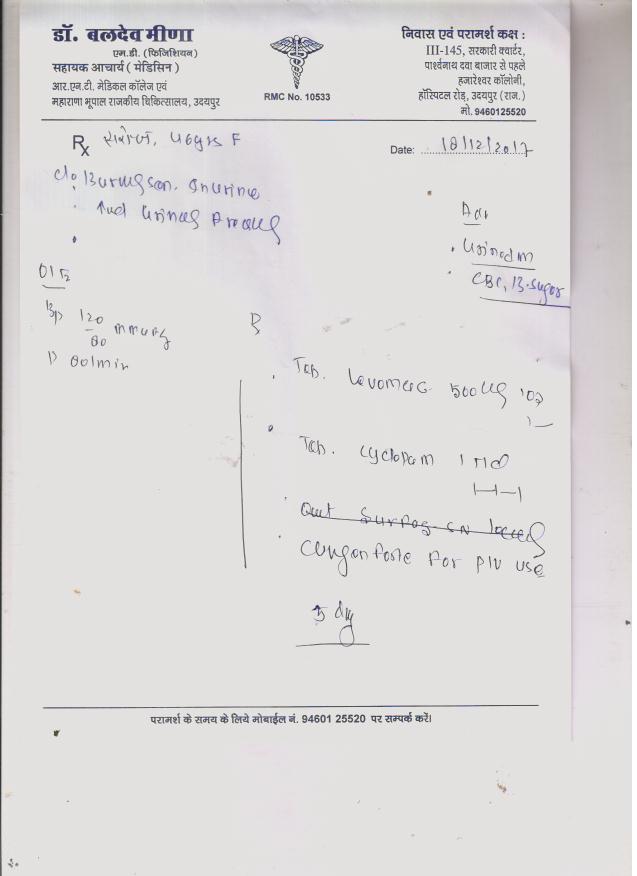 डॉ. बलदेव मीणा
एम.डी. (फिजिशियन)
सहायक आचार्य ( मेडिसिन )
आर.एन.टी. मेडिकल कॉलेज एवं
महाराणा भूपाल राजकीय चिकित्सालय, उदयपुर
RMC No. 10533
निवास एवं परामर्श कक्ष :
III-145, सरकारी क्वार्टर,
पार्श्वनाथ दवा बाजार से पहले
हजारेश्वर कॉलोनी,
हॉस्पिटल रोड़, उदयपुर (राज.)
मो. 9460125520
Rx सरोज, 46yrs F
Date: 18/12/2017
c/o Burning sen. in urine
Adv
CBC, B.sugar
O/E
Bp 120/80 mmHg
P 80/min
R
Tab. 500mg
Tab. cyclopam 1 TID
1-1-1
for P/V use
5 day
परामर्श के समय के लिये मोबाईल नं. 94601 25520 पर सम्पर्क करें।